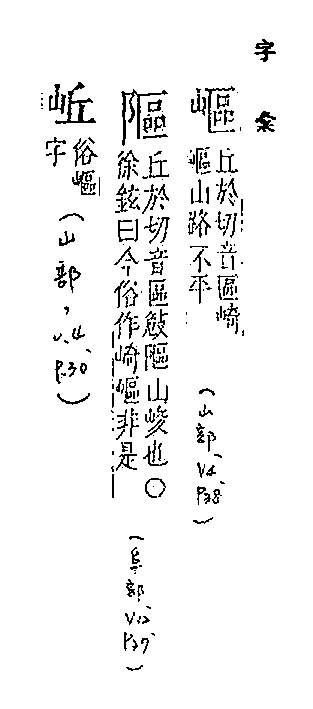 字彙
嶇 丘於切音區崎
嶇山路不平
(山部、V.4、P.38)
陬
丘於切音區㩻陬山峻也○
徐鉉曰今俗作崎嶇非是
(阜部、V.12、P.37)
岴 俗嶇
字
(山部，V.4、P.30)